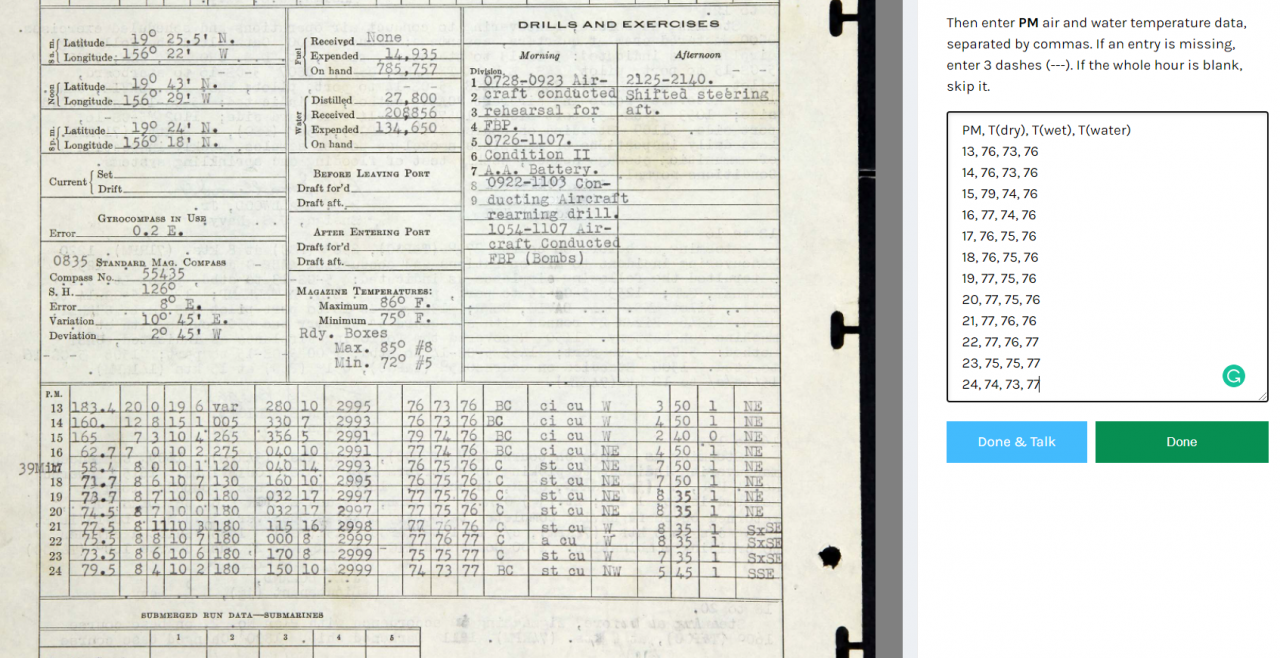 DRILLS AND EXERCISES
Morning Afternoon
Division
1 0728-0923 Air- 2125-2140.
2 craft conducted Shifted steering
3 rehearsal for aft.
4 FBP.
5 0726-1107.
6 Condition II
7 A.A. Battery.
8 0922-1103 Con-
9 ducting Aircraft
rearming drill.
1054-1107 Air-
craft Conducted
FBP (Bombs)
Latitude 19° 25.5' N.
Longitude 156° 22' W
Noon
Latitude 19° 43' N.
Longitude 156° 29' W
Latitude 19° 24' N.
Longitude 156° 18' N.
Current Set
Drift
GYROCOMPASS IN USE
Error 0.2 E.
0835 STANDARD MAG. COMPASS
Compass No. 55435
S. H. 126°
Error 8° E.
Variation 10° 45' E.
Deviation 2° 45' W
Fuel
Received None
Expended 14,935
On hand 785,757
Water
Distilled 27,800
Received 208856
Expended 134,650
On hand
BEFORE LEAVING PORT
Draft for'd
Draft aft.
AFTER ENTERING PORT
Draft for'd
Draft aft.
MAGAZINE TEMPERATURES:
Maximum 86° F.
Minimum 75° F.
Rdy. Boxes
Max. 85° #8
Min. 72° #5
P.M.
13 183.4 20 0 19 6 var 280 10 2995 76 73 76 BC ci cu W 3 50 1 NE
14 160. 12 8 15 1 005 330 7 2993 76 73 76 BC ci cu W 4 50 1 NE
15 165 7 3 10 4 265 356 5 2991 79 74 76 BC ci cu W 2 40 0 NE
16 62.7 7 0 10 2 275 040 10 2991 77 74 76 BC ci cu NE 4 50 1 NE
39Min 17 58.4 8 0 10 1 120 040 14 2993 76 75 76 C st cu NE 7 50 1 NE
18 71.7 8 6 10 7 130 160 10 2995 76 75 76 C st cu NE 7 50 1 NE
19 73.7 8 7 10 0 180 032 17 2997 77 75 76 C st cu NE 8 35 1 NE
20 74.5 8 7 10 0 180 032 17 2997 77 75 76 C st cu NE 8 35 1 NE
21 77.5 8 11 10 3 180 115 16 2998 77 76 76 C st cu W 8 35 1 SxSE
22 75.5 8 8 10 7 180 000 8 2999 77 76 77 C a cu W 8 35 1 SxSE
23 73.5 8 6 10 6 180 170 8 2999 75 75 77 C st cu W 7 35 1 SxSE
24 79.5 8 4 10 2 180 150 10 2999 74 73 77 BC st cu NW 5 45 1 SSE
SUBMERGED RUN DATA—SUBMARINES
1 2 3 4 5
Then enter PM air and water temperature data,
separated by commas. If an entry is missing,
enter 3 dashes (---). If the whole hour is blank,
skip it.
PM, T(dry), T(wet), T(water)
13, 76, 73, 76
14, 76, 73, 76
15, 79, 74, 76
16, 77, 74, 76
17, 76, 75, 76
18, 76, 75, 76
19, 77, 75, 76
20, 77, 75, 76
21, 77, 76, 76
22, 77, 76, 77
23, 75, 75, 77
24, 74, 73, 77
Done & Talk
Done